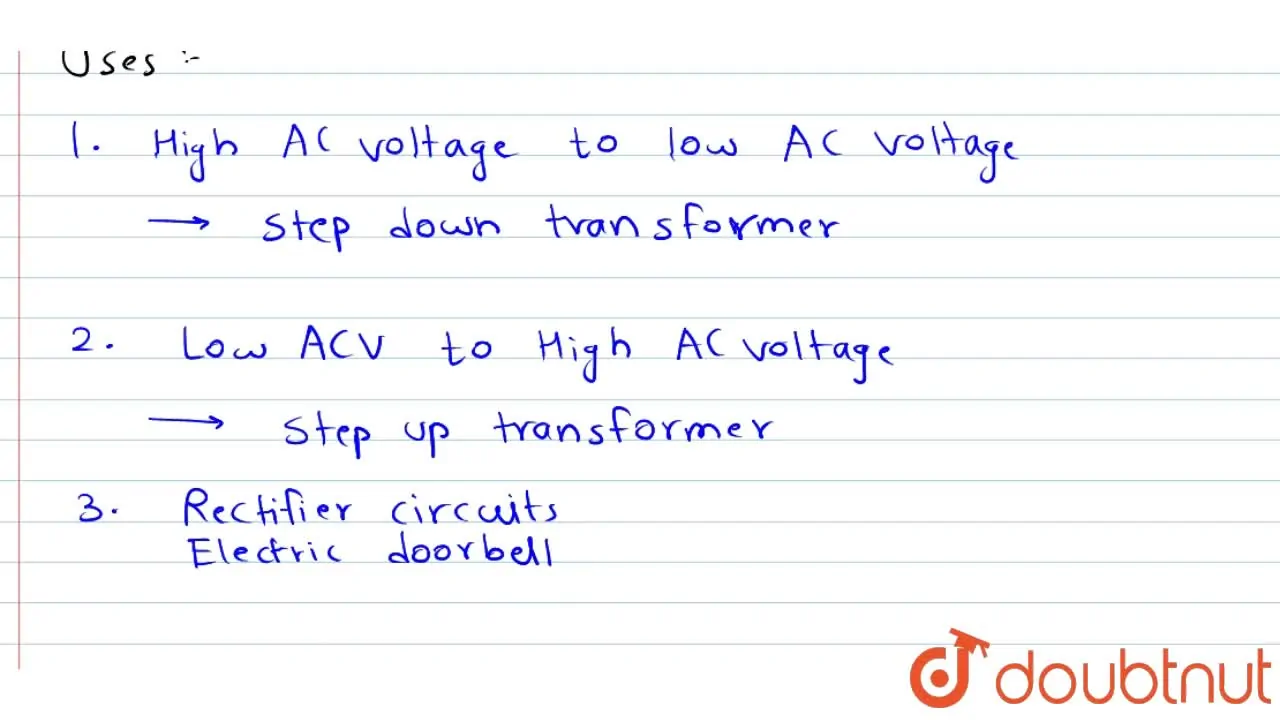 Uses :-
1. High AC voltage to low AC voltage
→ step down transformer
2. Low ACV to High AC voltage
→ step up transformer
3. Rectifier circuits
Electric doorbell
doubtnut